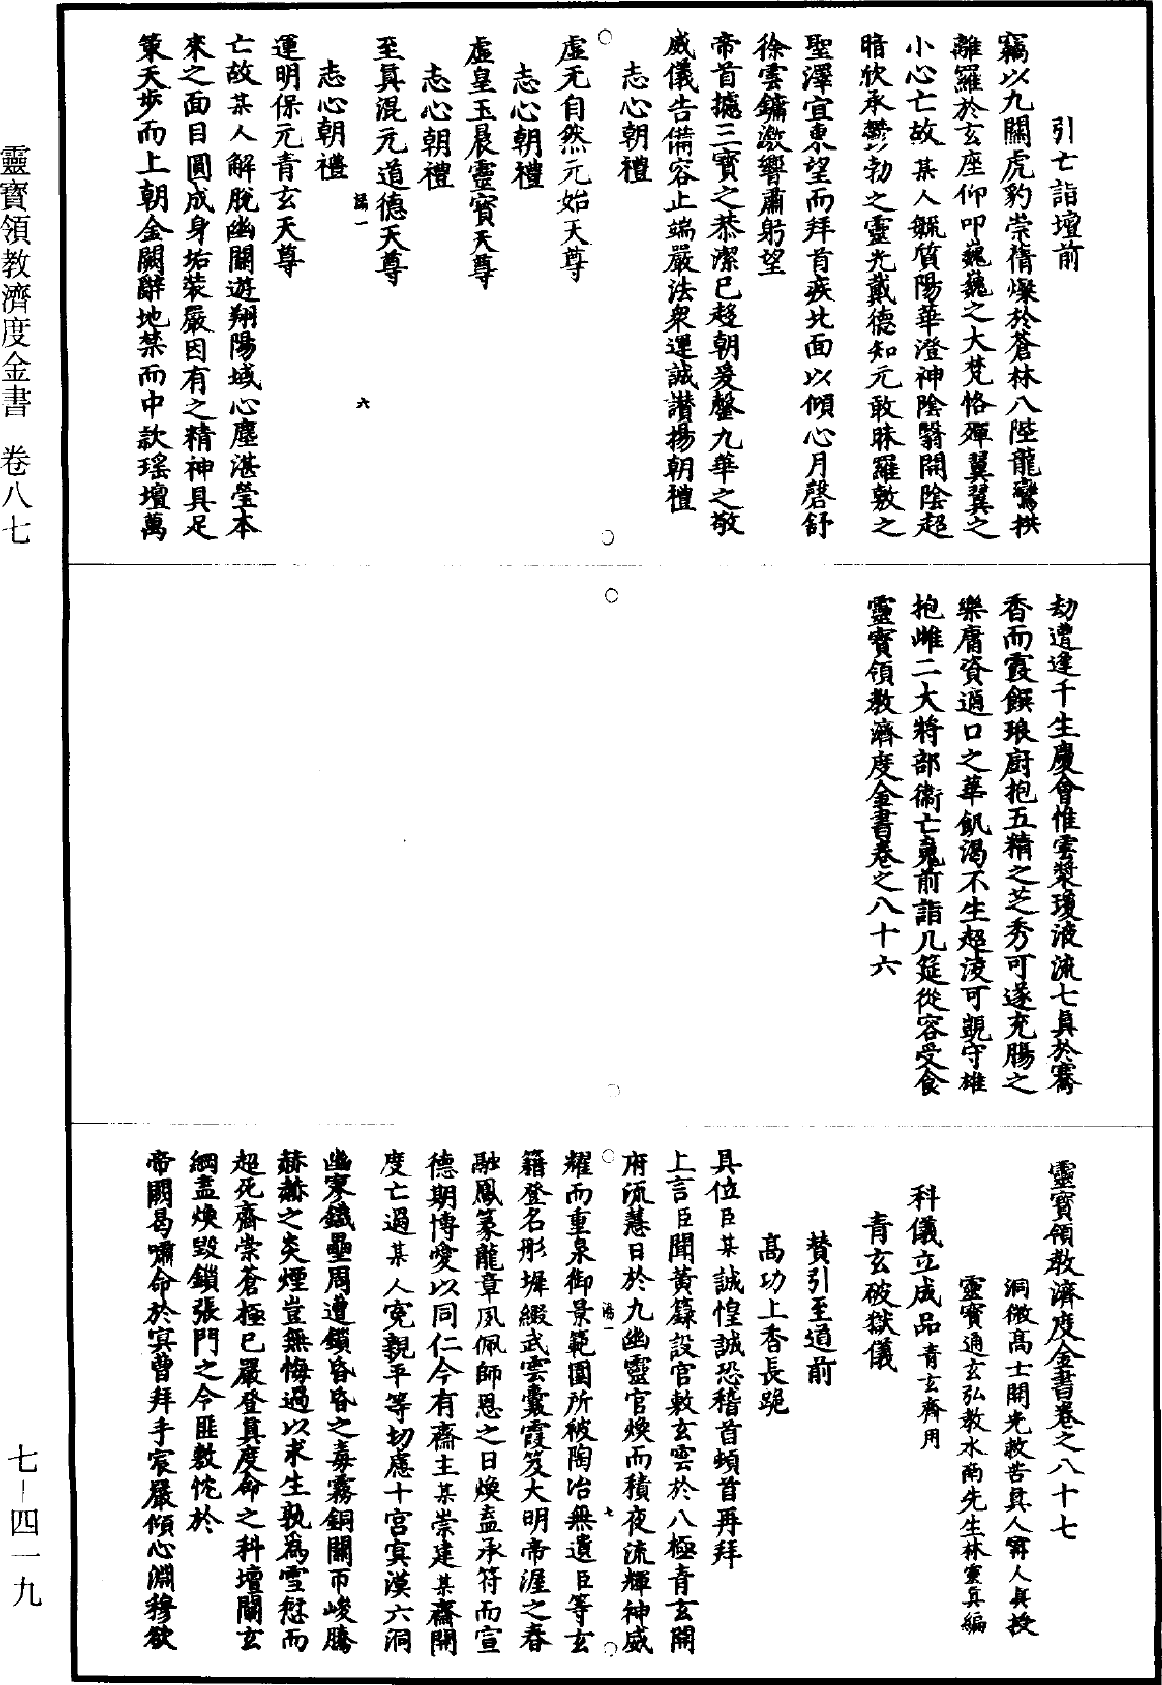 引亡詣壇前
竊以九關虎豹崇脩燦於蒼林八陛龍鸞拱
離羅於玄座仰叩巍巍之大梵恪殫翼翼之
小心亡故某人毓質陽華澄神陰翳開陰超
暗欣承鬱勃之靈光戴德知元敢昧羅敷之
聖澤宜東望而拜首疾北面以傾心月磬舒
徐雲鏞激響肅躬望
帝首摅三寶之恭潔已趍朝爰罄九華之敬
威儀告備容止端嚴法衆運誠讚揚朝禮
志心朝禮
虛无自然元始天尊
志心朝禮
虛皇玉晨靈寶天尊
志心朝禮
至眞混元道德天尊
六
志心朝禮
運明保元青玄天尊
亡故某人解脫幽關遊翔陽域心塵湛瑩本
來之面目圓成身垢裝嚴因有之精神具足
策天步而上朝金闕辭地禁而中款瑤壇萬
劫遭逢千生慶會惟雲漿瓊液流七眞於騫
香而霞饌琅廚抱五精之芝秀可遂充腸之
樂庸資適口之華飢渴不生超淩可覬守雄
抱雌二大將部衛亡䰟前詣几筵從容受食
靈寶領教濟度金書卷之八十六
靈寶領教濟度金書卷之八十七
洞微高士開光救苦眞人甯人眞授
靈寶通玄弘教水南先生林靈眞編
科儀立成品青玄齋用
青玄破獄儀
贊引至道前
高功上香長跪
具位臣某誠惶誠恐稽首頓首再拜
上言臣聞黃籙設官敷玄雲於八極青玄開
府流慧日於九幽靈官煥而積夜流輝神威
七
耀而重泉御景範圍所被陶冶無遺臣等玄
籍登名彤墀綴武雲囊霞笈大明帝渥之春
融鳳篆龍章夙佩師恩之日煥盍承符而宣
德期博愛以同仁今有齋主某崇建某齋開
度亡過某人寃親平等切慮十宮寞漠六洞
幽寥鐵壘周遭鎖昏昏之毒霧銅關帀峻騰
赫赫之炎煙豈無悔過以求生孰爲雪愆而
超死齋崇蒼極已嚴登眞度命之科壇闢玄
綱盍煥毀鎖張門之令匪敷悃於
帝闕曷嘯命於冥曹拜手宸嚴傾心淵穆欲
靈寶領教濟度金書 卷八七
七－四一九